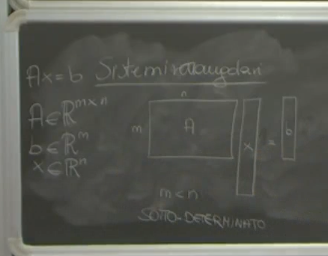 Ax=b Sistemi rettangolari
n
A∈ℝᵐˣⁿ
m A x = b
b∈ℝᵐ
x∈ℝⁿ
m<n
SOTTO-DETERMINATO